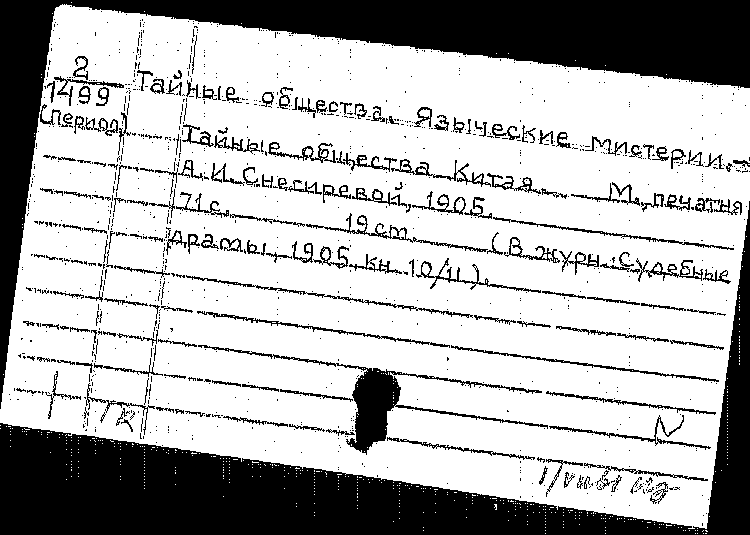 2
1499
(Период)
Тайные общества. Языческие мистерии.-
Тайные общества Китая. М., печатня
А. И. Снегиревой, 1905.
71с. 19 cm. (В журн.: Судебные
драмы, 1905, кн. 10/11).
ГК